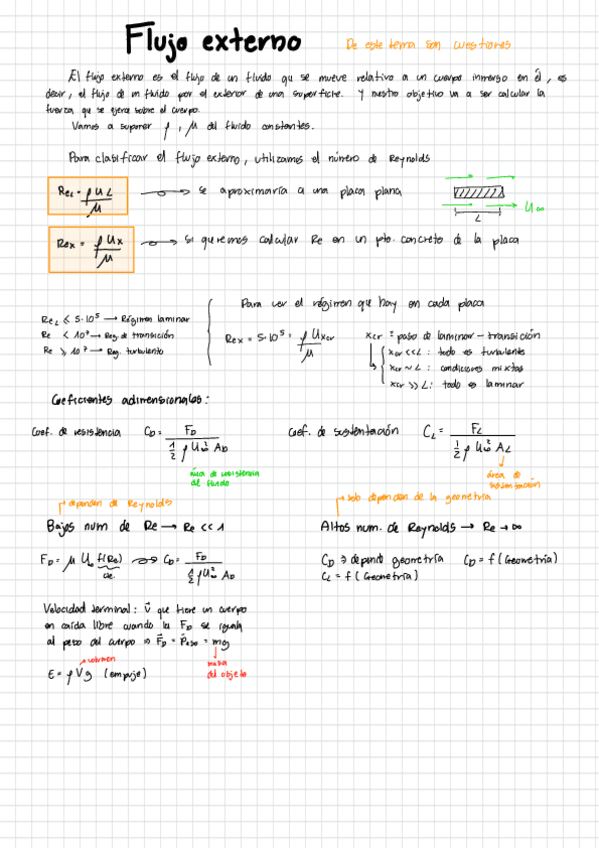 Flujo externo
De este tema son cuestiones
El flujo externo es el flujo de un fluido que se mueve relativo a un cuerpo inmerso en él, es
decir, el flujo de un fluido por el exterior de una superficie. Y nuestro objetivo va a ser calcular la
fuerza que se ejerce sobre el cuerpo.
Vamos a suponer ρ, μ del fluido constantes.
Para clasificar el flujo externo, utilizamos el número de Reynolds
Re_L = ρUL/μ → se aproximaría a una placa plana
U∞
L
Re_x = ρUx/μ → si queremos calcular Re en un pto. concreto de la placa
Para ver el régimen que hay en cada placa
Re_L ≤ 5·10⁵ → Régimen laminar
Re < 10⁷ → Reg. de transición
Re ≥ 10⁷ → Reg. turbulento
Re_x = 5·10⁵ = ρUx_cr/μ
x_cr = paso de laminar - transición
x_cr << L : todo es turbulento
x_cr ~ L : condiciones mixtas
x_cr >> L : todo es laminar
Coeficientes adimensionales:
Coef. de resistencia C_D = F_D / (1/2 ρ U∞² A_D)
área de resistencia
del fluido
Coef. de sustentación C_L = F_L / (1/2 ρ U∞² A_L)
área de
sustentación
dependen de Reynolds
Bajos num de Re → Re << 1
F_D = μ U∞ f(Re) → C_D = F_D / (1/2 ρ U∞² A_D)
solo dependen de la geometría
Altos num. de Reynolds → Re → ∞
C_D → depend geometría C_D = f (Geometría)
C_L = f (Geometría)
Velocidad terminal: v que tiene un cuerpo
en caída libre cuando la F_D se iguala
al peso del cuerpo ⇒ F_D = P_peso = mg
masa
del objeto
volumen
E = ρVg (empuje)